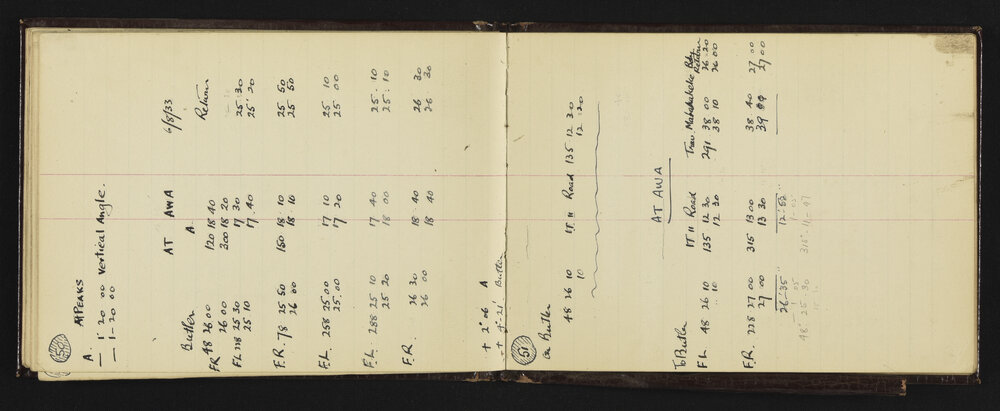 50
AT PEAKS
A.
— 1° 20 00 Vertical Angle.
— 1 - 20 00
6/8/33
AT AWA
Butler A. Return
FR 48 26 00 120 18 40
26 00 300 18 20
F.L 228 25 30 17 30 25 30
25 10 17 40 25 20
F.R. 78 25 50 150 18 10 25 50
26 00 18 10 25 50
F.L. 258 25 00 17 10 25 10
25 00 17 20 25 00
F.L. 288 25 10 17 40 25 10
25 20 18 00 25 10
F.R. 26 30 18 40 26 30
26 00 18 40 26 30
+ 2° 06 A
+ 4° 21' Butler
51
On Butler
48 26 10 IT II Road 135 12 30
10 12 20
AT AWA
To Butler IT II Road Trav. Return
F.L. 48 26 10 135 12 30 291 38 00 26 20
10 12 30 38 10 26 00
F.R. 228 27 00 315 13 00 38 40 27 00
27 00 13 30 39 27 00
26-35" 12-52
48° 25 30 315-11-47